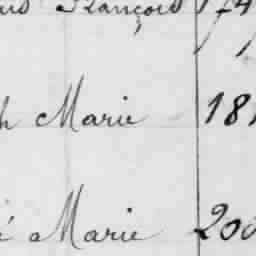 François 174
h Marie 181
é Marie 200